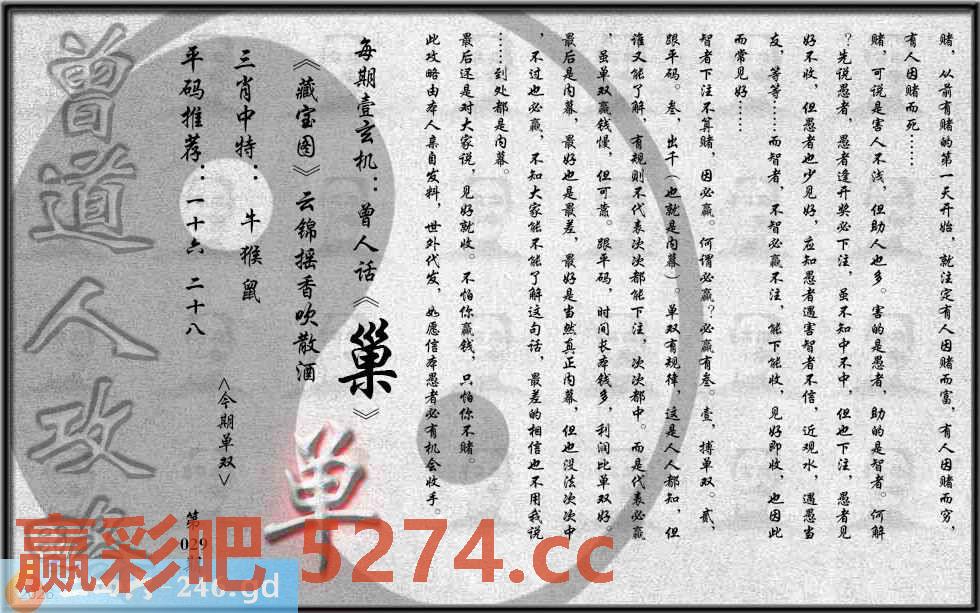 赌，从前有赌的第一天开始，就注定有人因赌而富，有人因赌而穷，
有人因赌而死……
赌，可说是害人不浅，但助人也多。害的是愚者，助的是智者。何解
？先说愚者，愚者逢开奖必下注，虽不知中不中，但也下注，愚者见
好不收，但愚者也少见好，应知愚者遇害智者不信，近观水，遇愚当
友，等等……而智者，不智必赢不注，能下能收，见好即收，也因此
而常见好……
智者下注不算赌，因必赢。何谓必赢？必赢有叁。壹，搏单双。贰，
跟平码。叁，出千（也就是内幕）。单双有规律，这是人人都知，但
谁又能了解，有规则不代表次次都能下注，次次都中。而是代表必赢
，虽单双赢钱慢，但可靠。跟平码，时间长本钱多，利润比单双好。
最后是内幕，最好也是最差，最好是当然真正内幕，但也没法次次中
，不过也必赢，不知大家能不能了解这句话，最差的相信也不用我说
……到处都是内幕。
最后还是对大家说，见好就收。不怕你赢钱，只怕你不赌。
此攻略由本人亲自发料，世外代发，如愿信本愚者必有机会收手。
每期壹玄机：曾人话《巢》
《藏宝图》云锦摇香吹散酒
三肖中特：牛猴鼠
平码推荐：一十六 二十八
<今期单双>
单
第029
曾道人攻
赢彩吧 5274.cc
246.gd